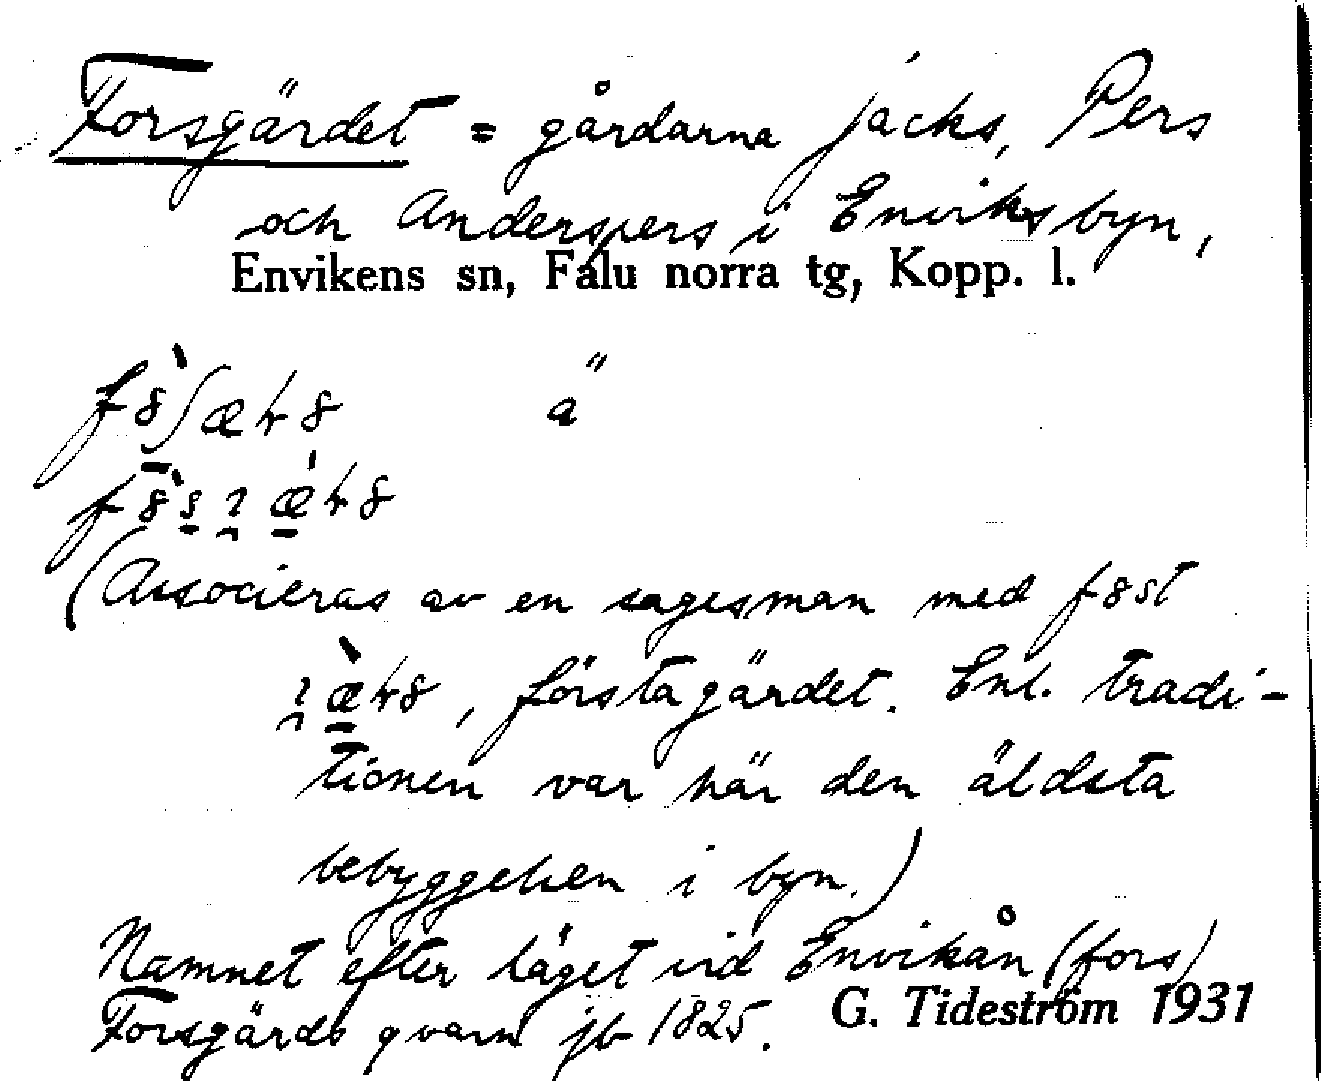 Forsgärdet = gårdarna Jacks, Pers
och Anderspers i Enviksbyn,
Envikens sn, Falu norra tg, Kopp. l.
ä
(Associeras av en sagesman med
, förstagärdet. Enl. tradi-
tionen var här den äldsta
bebyggelsen i byn.)
Namnet efter läget vid Envikån (fors)
Forsgärds qvarn jb 1825.
G. Tideström 1931